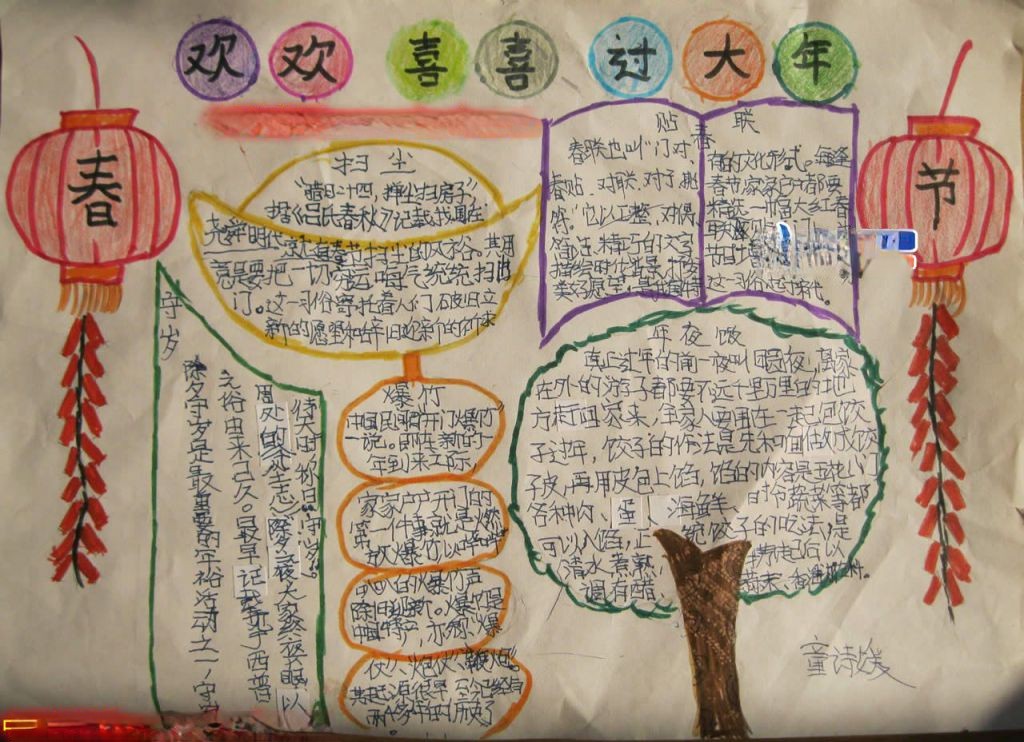 欢欢喜喜过大年
春
节
扫尘
“腊月二十四，掸尘扫房子”
据《吕氏春秋》记载，我国在
尧舜时代就有春节扫尘的风俗。其用
意是要把一切穷运晦气统统扫出
门。这一习俗寄托着人们破旧立
新的愿望和辞旧迎新的祈求
贴春联
春联也叫“门对、
春贴、对联、对子、桃
符”它以工整、对偶
简洁、精巧的文字
描绘时代背景，抒发
美好愿望，是我国特
有的文化形式。每逢
春节家家户户都要
精选一幅大红春
这一习俗起于宋代。
守岁
除夕守岁是最重要的年俗活动之一，守岁
之俗由来已久。最早记载见于西晋
周处的《风土志》：除夕夜大家终夜不眠，以
待天明，称曰“守岁”。
爆竹
中国民间有“开门爆竹”
一说。即在新的一
年到来之际，
家家户户开门的
第一件事就是燃
放爆竹，以哔哔
叭叭的爆竹声
除旧迎新。爆竹是
中国特产，亦称“爆
仗”、“炮仗”、“鞭炮”。
其起源很早，至今已经有
两千多年的历史了
年夜饭
真正过年的前一夜叫团圆夜，离家
在外的游子都要不远千里万里的地
方赶回家来，全家人要围在一起包饺
子过年，饺子的作法是先和面做成饺
子皮，再用皮包上馅，馅的内容是五花八门
各种肉、蛋、海鲜、
时令蔬菜等都
可以入馅，正统饺子的吃法，是
清水煮熟
调有醋、
童诗媛